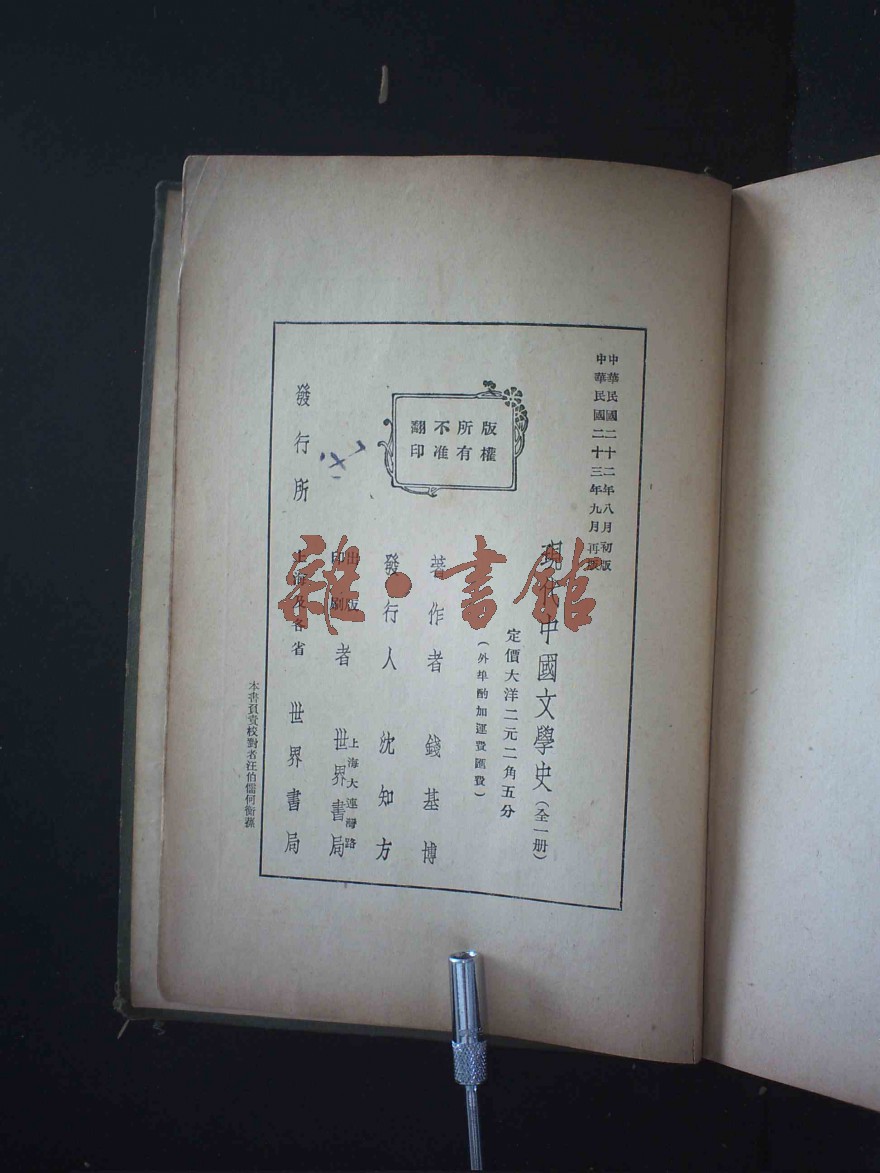 中華民國二十二年八月初版
中華民國二十三年九月再版
現代中國文學史（全一册）
定價大洋二元二角五分
（外埠酌加運費匯費）
版權
所有
不准
翻印
著作者 錢基博
發行人 沈知方
出版
印刷
者 世界書局
上海大連灣路
發行所 上海及各省 世界書局
本書負責校對者汪伯儒何衡蓀
雜·書館